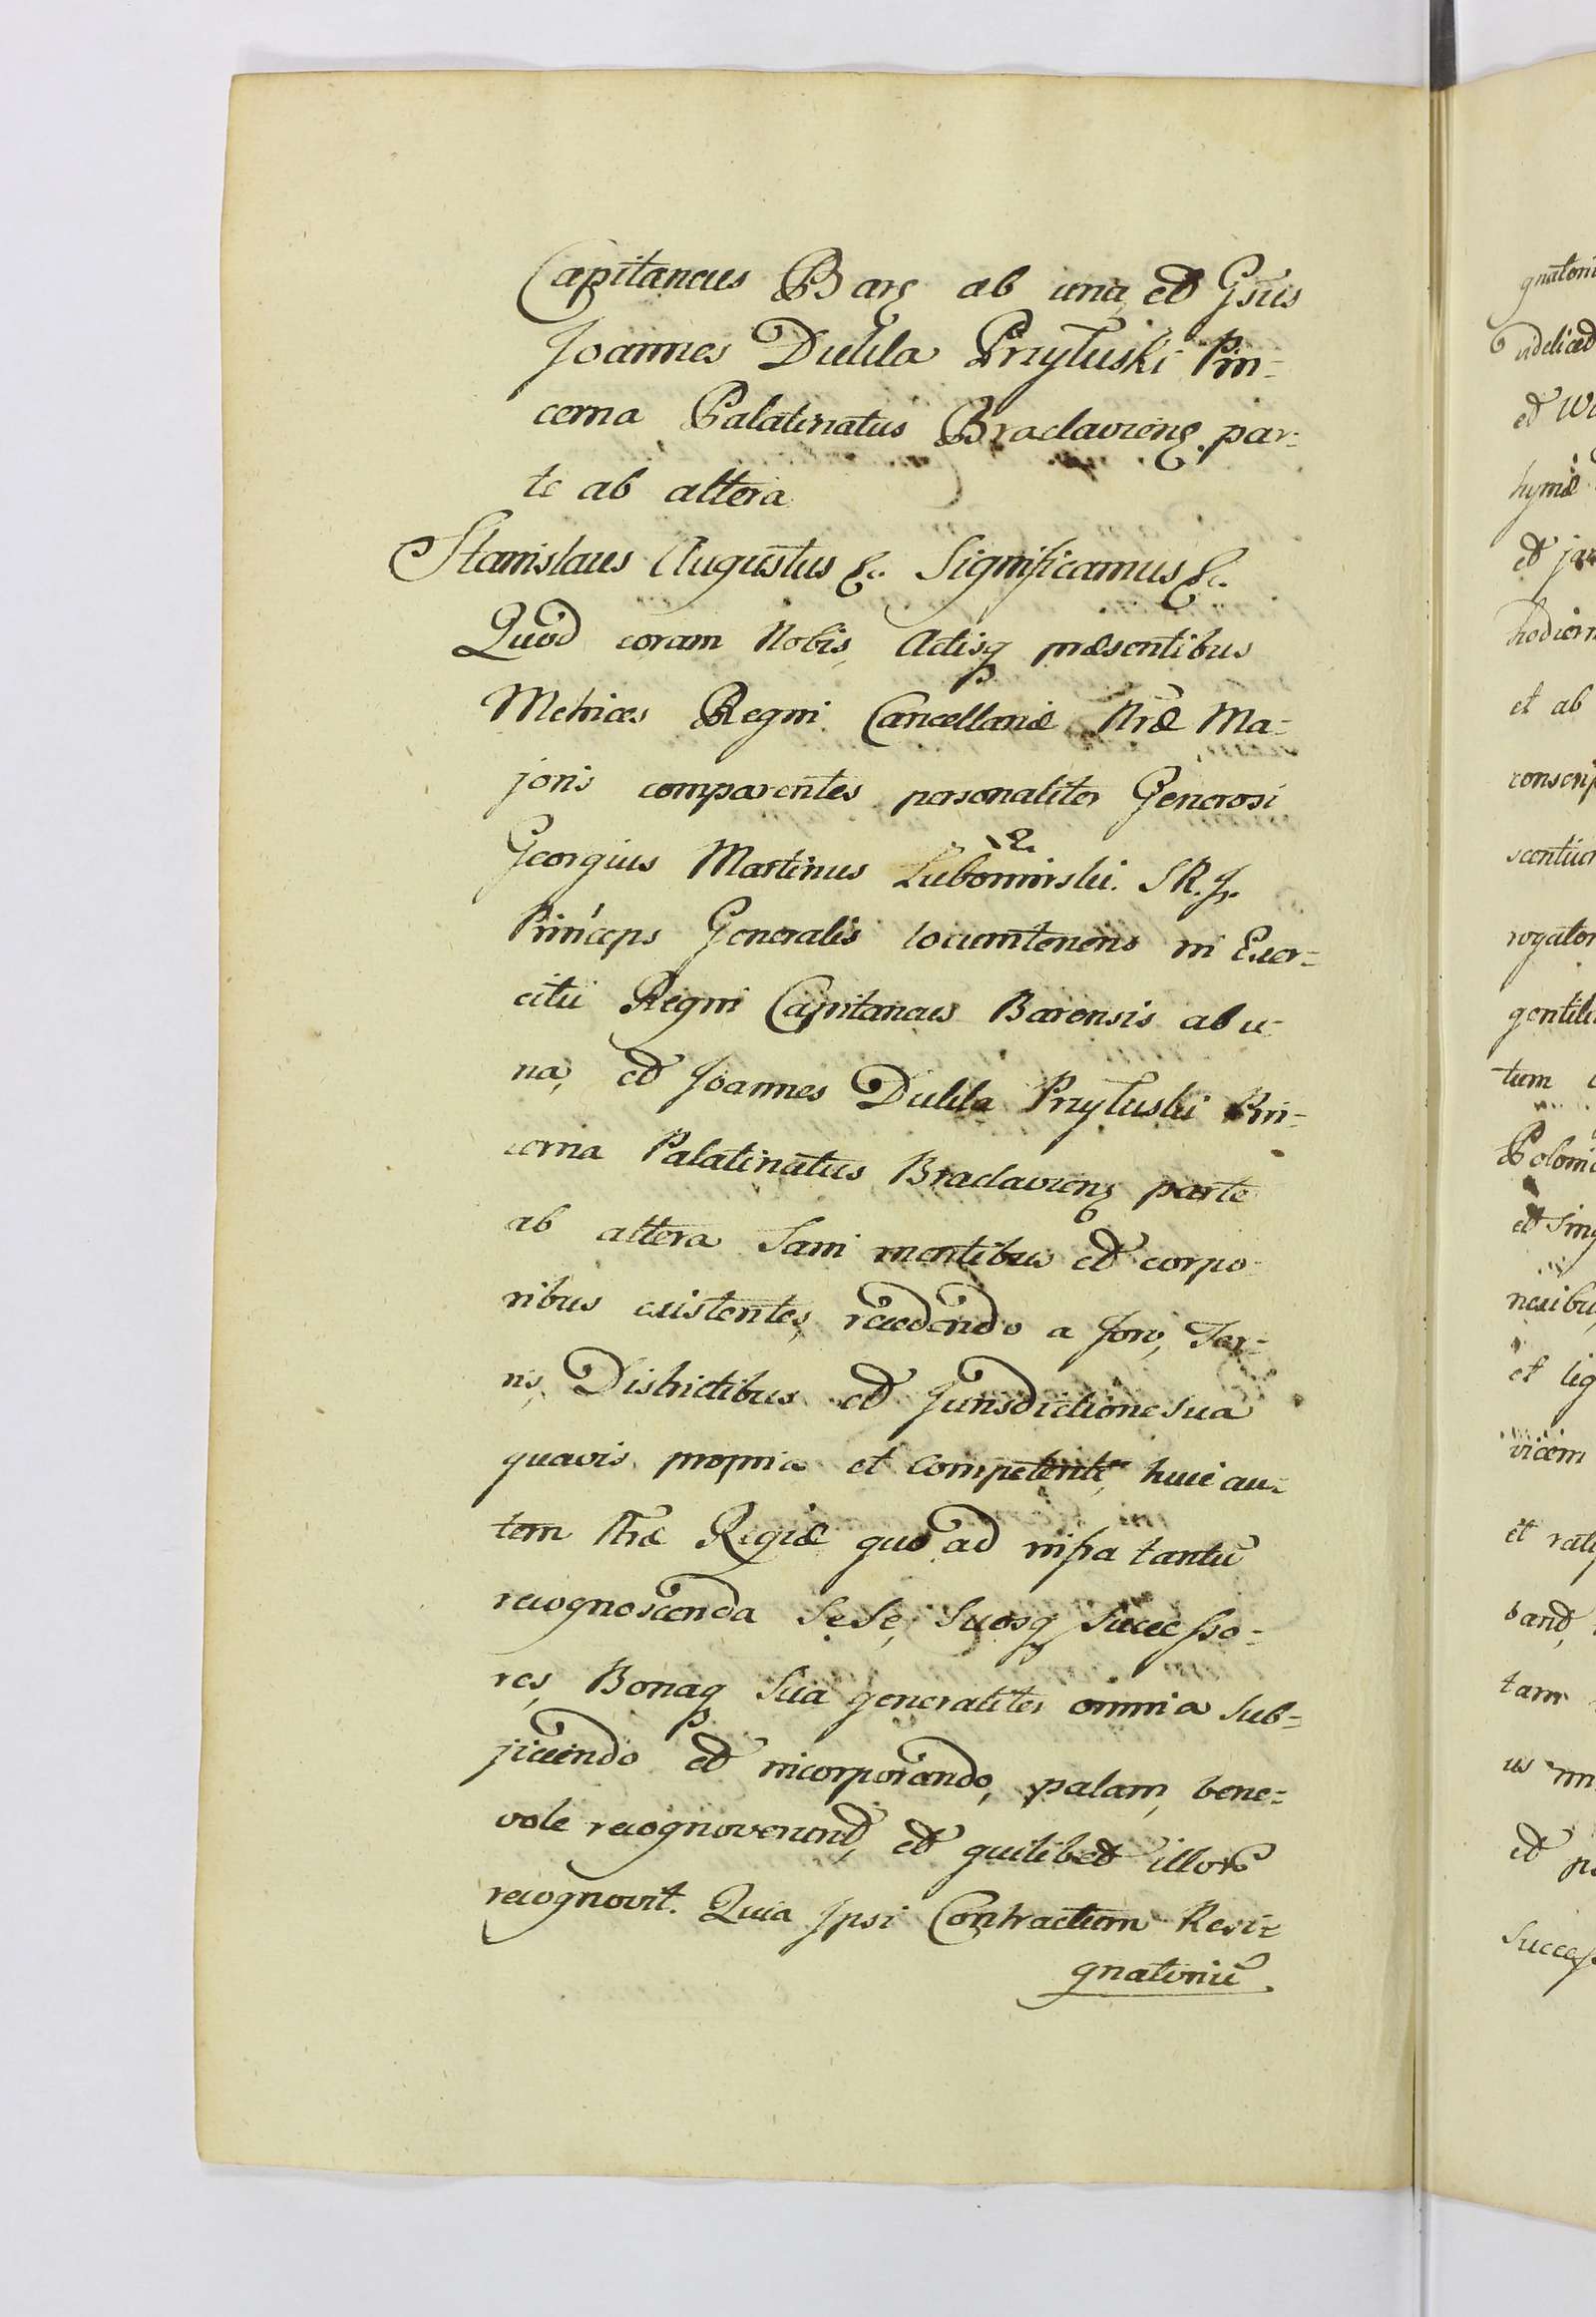 Capitaneus Barȩ ab una, et Gsus
Joannes Dulila Przyłuski Pin=
cerna Palatinatus Bracłavienȩ. par=
te ab altera
Stanislaus Augustus &c. Significamus &c.
Quod coram Nobis, Actisq præsentibus
Metrices Regni Cancellariæ Nræ Ma=
joris comparentes personaliter Generosi
Georgius Martinus Lubomirski. S.R.J.
Princeps Generalis locumtenens in Exer=
citu Regni Capitaneus Barensis ab u=
na, et Joannes Dulila Przyłuski Pin=
cerna Palatinatus Bracłavienȩ parte
ab altera Sani mentibus et corpo=
ribus existentes, recedendo a foro, Ter=
ris, Districtibus et Jurisdictione sua
quavis propria et Competenti, huic au=
tem Nræ Regiæ quo ad infra tantū
recognoscenda Sese, Suosq Successo=
res, Bonaq Sua generaliter omnia Sub=
jiciendo et incorporando, palam, bene=
vole recognoverunt, et quilibet illorū
recognovit. Quia Jpsi Contractum Resi=
gnatoriū
gnatori
videlicet
et
hymæ
et
hodiern
et ab
conscrip
scentium
rogator
gentili
tum
Poloni
et Sing
nexibu
et lig
vicem
et rati
band,
tam
us
et
Success